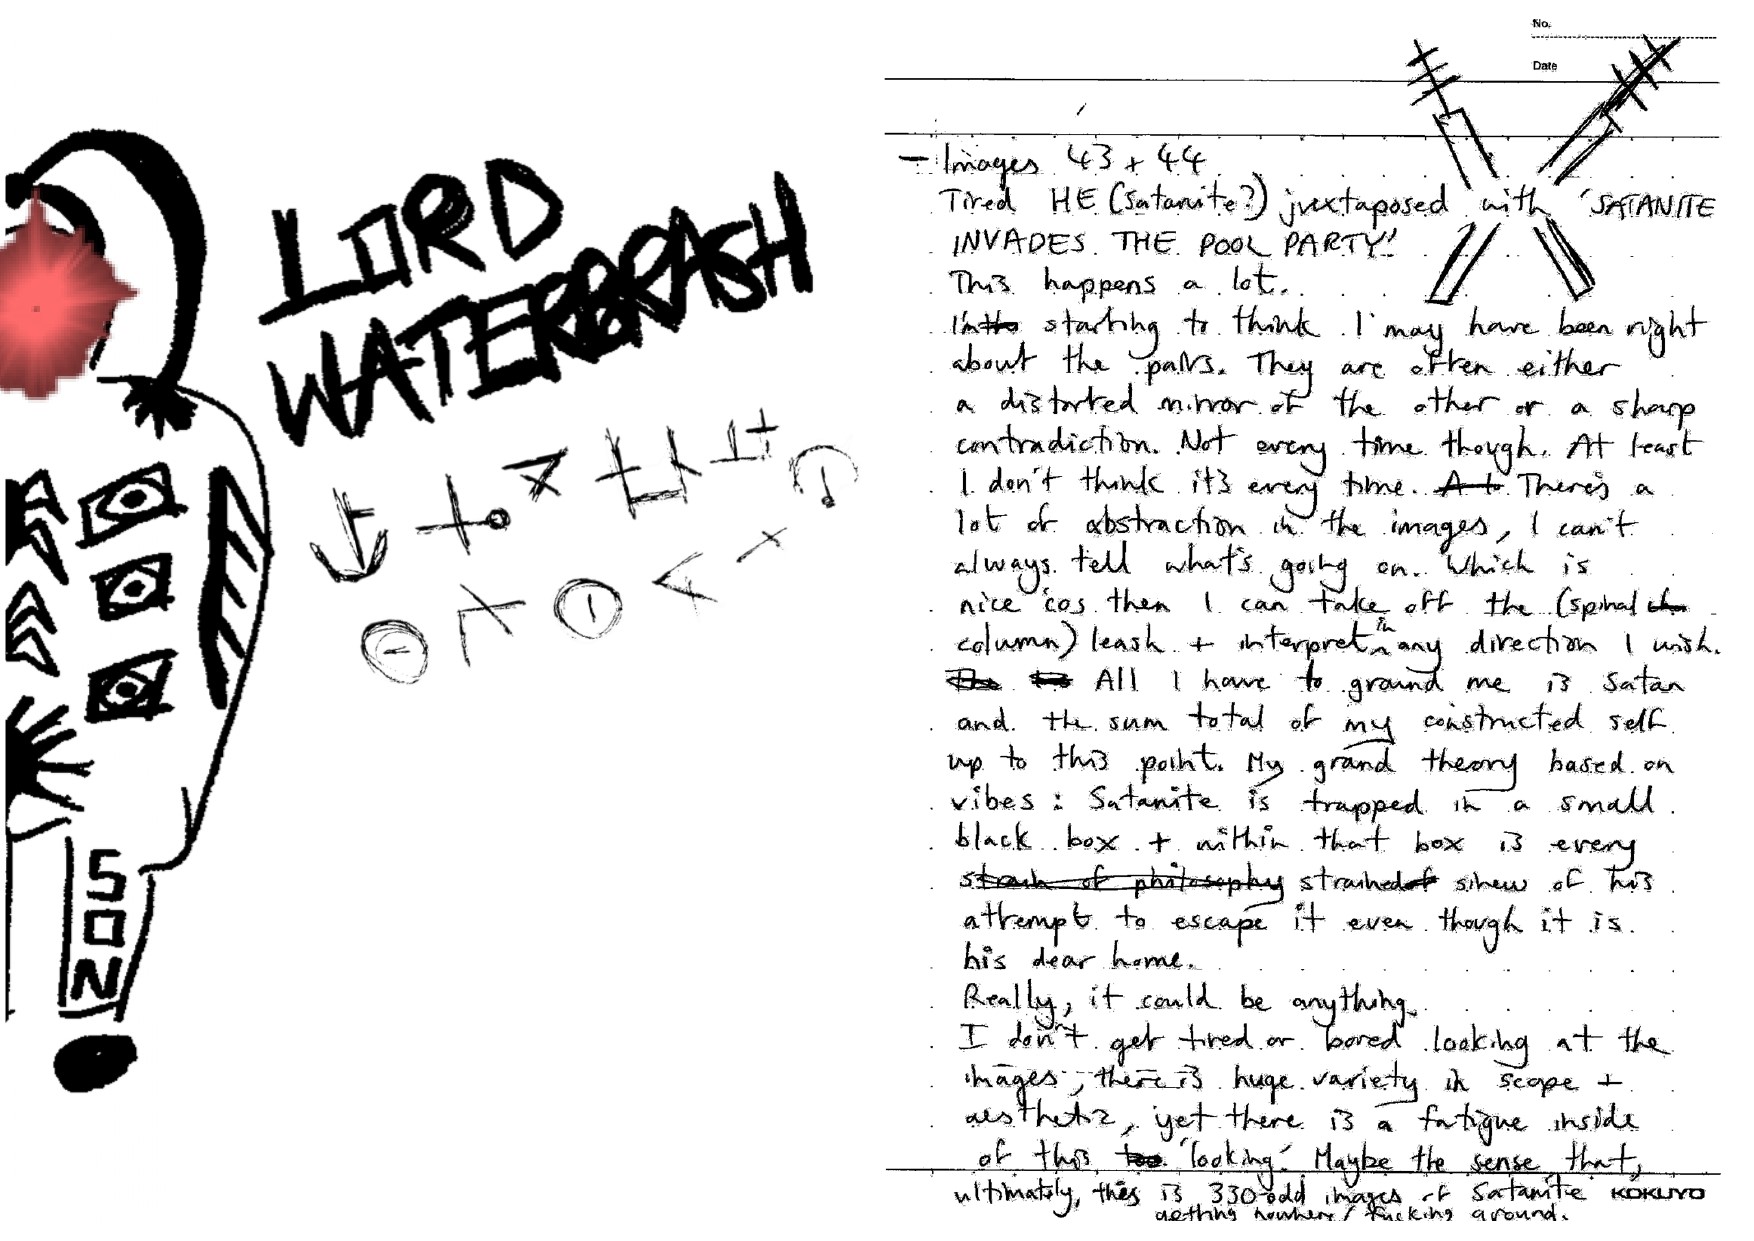 LORD
WATERBRASH
SON
No.
Date
- Images 43 + 44
Tired HE (Satanite?) juxtaposed with 'SATANITE
INVADES THE POOL PARTY!'
This happens a lot.
starting to think I may have been right
about the pairs. They are often either
a distorted mirror of the other or a sharp
contradiction. Not every time though. At least
I don't think it's every time. There's a
lot of abstraction in the images, I can't
always tell what's going on. Which is
nice 'cos then I can take off the (spinal
column) leash + interpret in any direction I wish.
All I have to ground me is Satan
and the sum total of my constructed self
up to this point. My grand theory based on
vibes: Satanite is trapped in a small
black box + within that box is every
strain of philosophy strained sinew of his
attempt to escape it even though it is
his dear home.
Really, it could be anything.
I don't get tired or bored looking at the
images, there is huge variety in scope +
aesthetic, yet there is a fatigue inside
of this 'looking'. Maybe the sense that,
ultimately, this is 330-odd images of Satanite
getting nowhere / fucking around.
KOKUYO